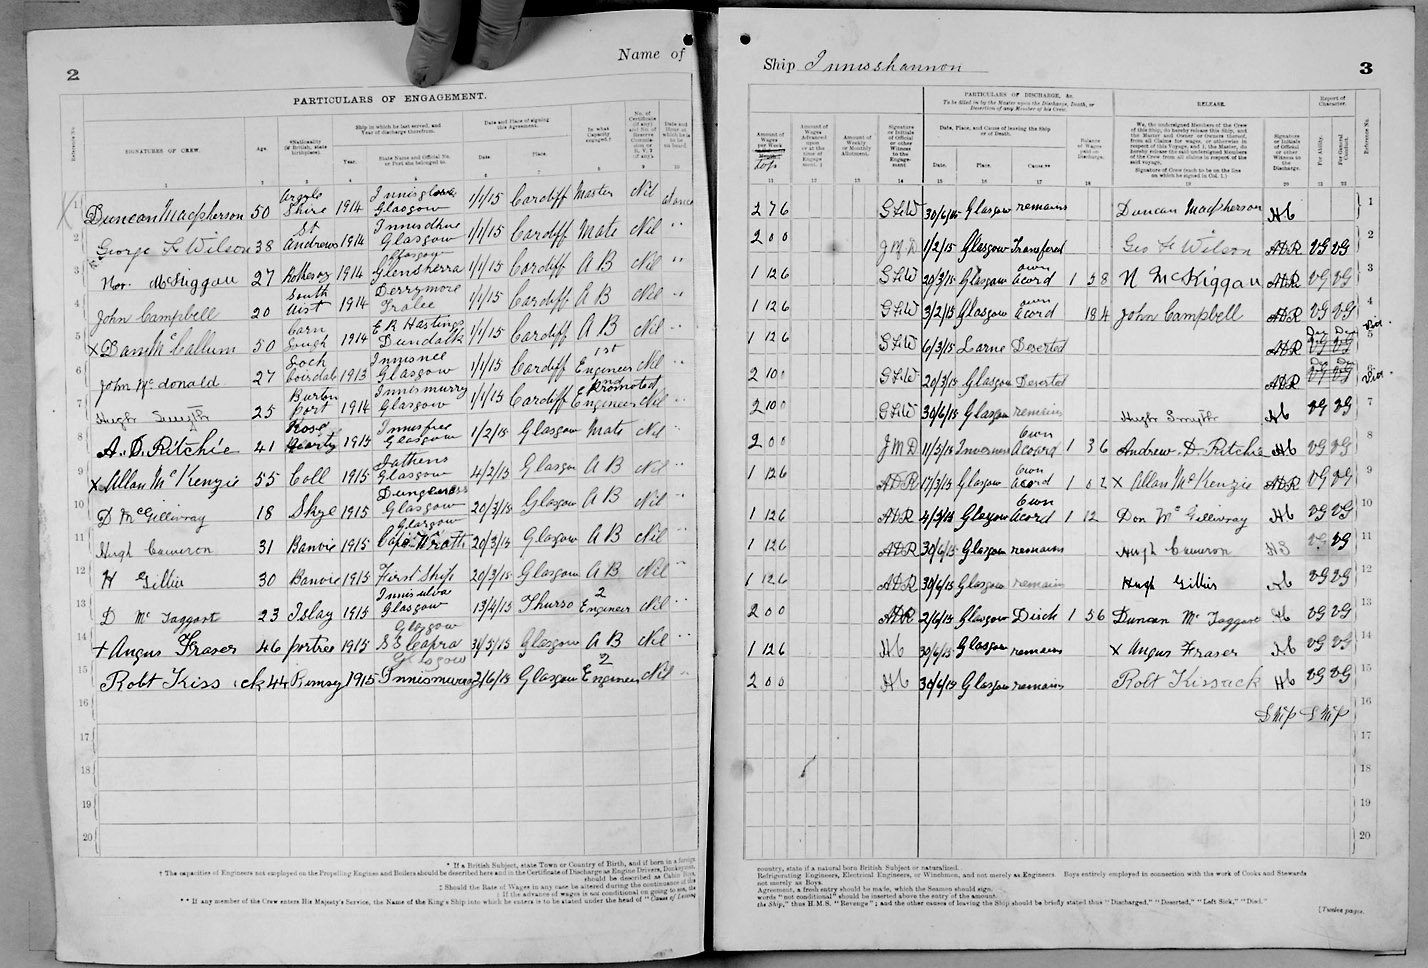 2
Name of
PARTICULARS OF ENGAGEMENT.
Reference No.
SIGNATURES OF CREW.
Age.
*Nationality (if British, state birthplace).
Ship in which he last served, and Year of discharge therefrom.
Year.
State Name and Official No. or Port she belonged to.
Date and Place of signing this Agreement.
Date.
Place.
In what Capacity engaged.†
No. of Certificate (if any) and No. of Reserve Commission or R. V 2 (if any).
Date and Hour at which he is to be on board
1 2 3 4 5 6 7 8 9 10
1 Duncan Macpherson 50 Argyle Shire 1914 Glasgow 1/1/15 Cardiff Master Nil at once
2 George F Wilson 38 St Andrews 1914 Innisdhu Glasgow 1/1/15 Cardiff Mate Nil "
3 Nor. McKiggan 27 Rothesay 1914 Glasgow Glensherra 1/1/15 Cardiff A B Nil "
4 John Campbell 20 South Uist 1914 Derrymore Tralee 1/1/15 Cardiff A B Nil "
5 X Danl McCallum 50 Carn lough 1914 E R Hastings Dundalk 1/1/15 Cardiff A B Nil "
6 John McDonald 27 Loch 1913 Innisnee Glasgow 1/1/15 Cardiff 1st Engineer Nil "
7 Hugh Smyth 25 Burton port 1914 Innismurry Glasgow 1/1/15 Cardiff 2nd promoted Engineer Nil "
8 A. D. Ritchie 41 Rose hearty 1915 Innisfree Glasgow 1/2/15 Glasgow Mate Nil "
9 X Allan McKenzie 55 Coll 1915 Glasgow 4/2/15 Glasgow A B Nil "
10 D McGillivray 18 Skye 1915 Dungeness Glasgow 20/3/15 Glasgow A B Nil "
11 Hugh Cameron 31 Banvie 1915 Glasgow Cape Wrath 20/3/15 Glasgow A B Nil "
12 H Gillies 30 Banvie 1915 First Ship 20/3/15 Glasgow A B Nil "
13 D McTaggart 23 Islay 1914 Innisulva Glasgow 13/4/15 Thurso 2 Engineer Nil "
14 + Angus Fraser 46 portree 1915 Glasgow S S Capra 31/5/15 Glasgow A B Nil "
15 Robt Kissack 44 Ramsey 1915 Glasgow Innismurray 2/6/15 Glasgow 2 Engineer Nil "
16
17
18
19
20
* If a British Subject, state Town or Country of Birth, and if born in a foreign
† The capacities of Engineers not employed on the Propelling Engines and Boilers should be described here and in the Certificate of Discharge as Engine Drivers, Donkeymen,
should be described as Cabin Boys,
‡ Should the Rate of Wages in any case be altered during the continuance of the
If the advance of wages is not conditional on going to sea, the
** If any member of the Crew enters His Majesty's Service, the Name of the King's Ship into which he enters is to be stated under the head of "Cause of Leaving
Ship Innisshannon
3
PARTICULARS OF DISCHARGE, &c.
To be filled in by the Master upon the Discharge, Death, or Desertion of any Member of his Crew.
RELEASE.
Report of Character.
Amount of Wages per Week
Amount of Wages Advanced upon or at the time of Engagement. ‡
Amount of Weekly or Monthly Allotment.
Signature or Initials of Official or other Witness to the Engagement
Date, Place, and Cause of leaving the Ship or of Death.
Date. Place. Cause.**
Balance of Wages paid on Discharge.
We, the undersigned Members of the Crew of this Ship, do hereby release this Ship, and the Master and Owner or Owners thereof, from all Claims for wages, or otherwise in respect of this Voyage, and I, the Master, do hereby release the undersigned Members of the Crew from all claims in respect of the said voyage.
Signature of Crew (each to be on the line on which he signed in Col. 1.)
Signature or Initials of Official or other Witness to the Discharge.
For Ability.
For General Conduct.
Reference No.
11 12 13 14 15 16 17 18 19 20 21 22
2 7 6 G F W 30/6/15 Glasgow remains Duncan Macpherson 1
2 0 0 J M D 1/2/15 Glasgow Transfered Geo F Wilson ADR VG VG 2
1 12 6 G F W 20/3/15 Glasgow own acord 1 3 8 N McKiggan ADR VG VG 3
1 12 6 G F W 3/2/15 Glasgow own acord 18 4 John Campbell ADR VG VG 4
1 12 6 G F W 6/3/15 Larne Deserted ADR VG VG 5
2 10 0 G F W 20/3/15 Glasgow Deserted ADR VG VG 6
2 10 0 G F W 30/6/15 Glasgow remains Hugh Smyth VG VG 7
2 0 0 J M D 11/5/15 Inverness Own acoard 1 3 6 Andrew. D. Ritchie VG VG 8
1 12 6 ADR 17/3/15 Glasgow Own acord 1 0 2 X Allan McKenzie ADR VG VG 9
1 12 6 ADR Glasgow Own acord 1 12 Don McGillivray VG VG 10
1 12 6 ADR 30/6/15 Glasgow remains Hugh Cameron VG VG 11
1 12 6 ADR 30/6/15 Glasgow remains Hugh Gillies VG VG 12
2 0 0 ADR 2/6/15 Glasgow Disch 1 5 6 Duncan McTaggart VG VG 13
1 12 6 30/6/15 Glasgow remains X Angus Fraser VG VG 14
2 0 0 30/6/15 Glasgow remains Robt Kissack VG VG 15
16
17
18
19
20
country, state if a natural born British Subject or naturalized.
Refrigerating Engineers, Electrical Engineers, or Winchmen, and not merely as Engineers. Boys entirely employed in connection with the work of Cooks and Stewards
not merely as Boys.
Agreement, a fresh entry should be made, which the Seamen should sign.
words "not conditional" should be inserted above the entry of the amount.
the Ship," thus H.M.S. "Revenge"; and the other causes of leaving the Ship should be briefly stated thus "Discharged," "Deserted," "Left Sick," "Died."
[Twelve pages.